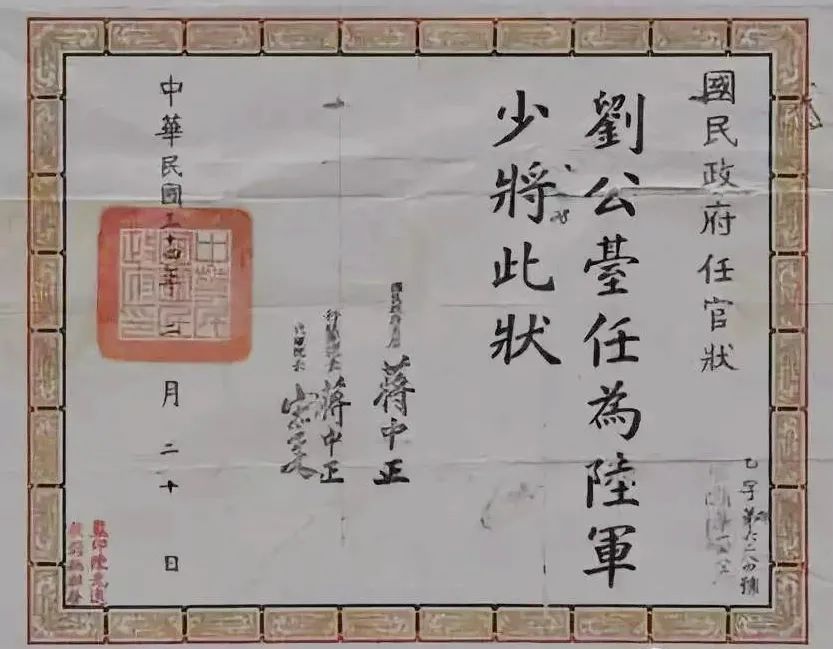 國民政府任官狀
乙字第六二八四號
劉公臺任為陸軍
少將此狀
國民政府主席 蔣中正
行政院長 蔣中正
代理院長 宋子文
中華民國三十四年二月二十日